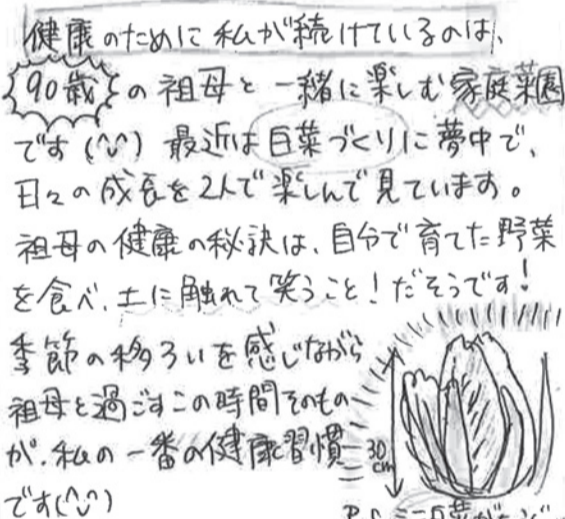 健康のために私が続けているのは、
90歳の祖母と一緒に楽しむ家庭菜園
です(^^) 最近は白菜づくりに夢中で、
日々の成長を2人で楽しんで見ています。
祖母の健康の秘訣は、自分で育てた野菜
を食べ、土に触れて笑うこと!だそうです!
季節の移ろいを感じながら
祖母と過ごすこの時間そのもの
が、私の一番の健康習慣
です(^^)
30cm
P.S